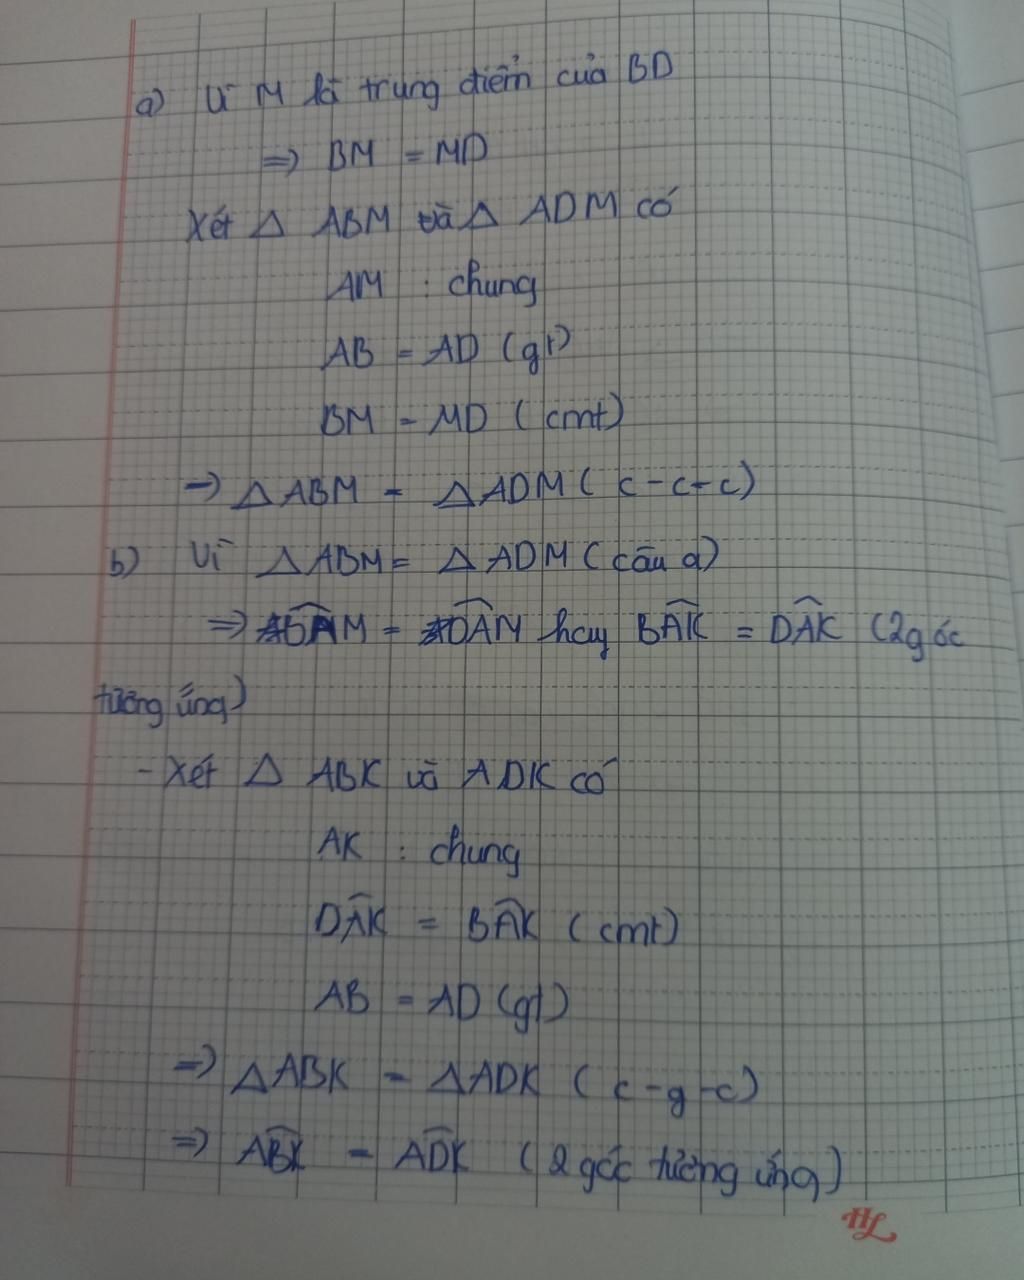 a) Vì M là trung điểm của BD
=> BM = MD
Xét △ ABM và △ ADM có
AM : chung
AB = AD (gt)
BM = MD (cmt)
=> △ABM = △ADM (c-c-c)
b) Vì △ABM = △ADM (câu a)
=> BÂM = DÂM hay BÂK = DÂK (2 góc
tương ứng)
- Xét △ ABK và ADK có
AK : chung
DÂK = BÂK (cmt)
AB = AD (gt)
=> △ABK = △ADK (c-g-c)
=> AB̂K = AD̂K (2 góc tương ứng)
HL